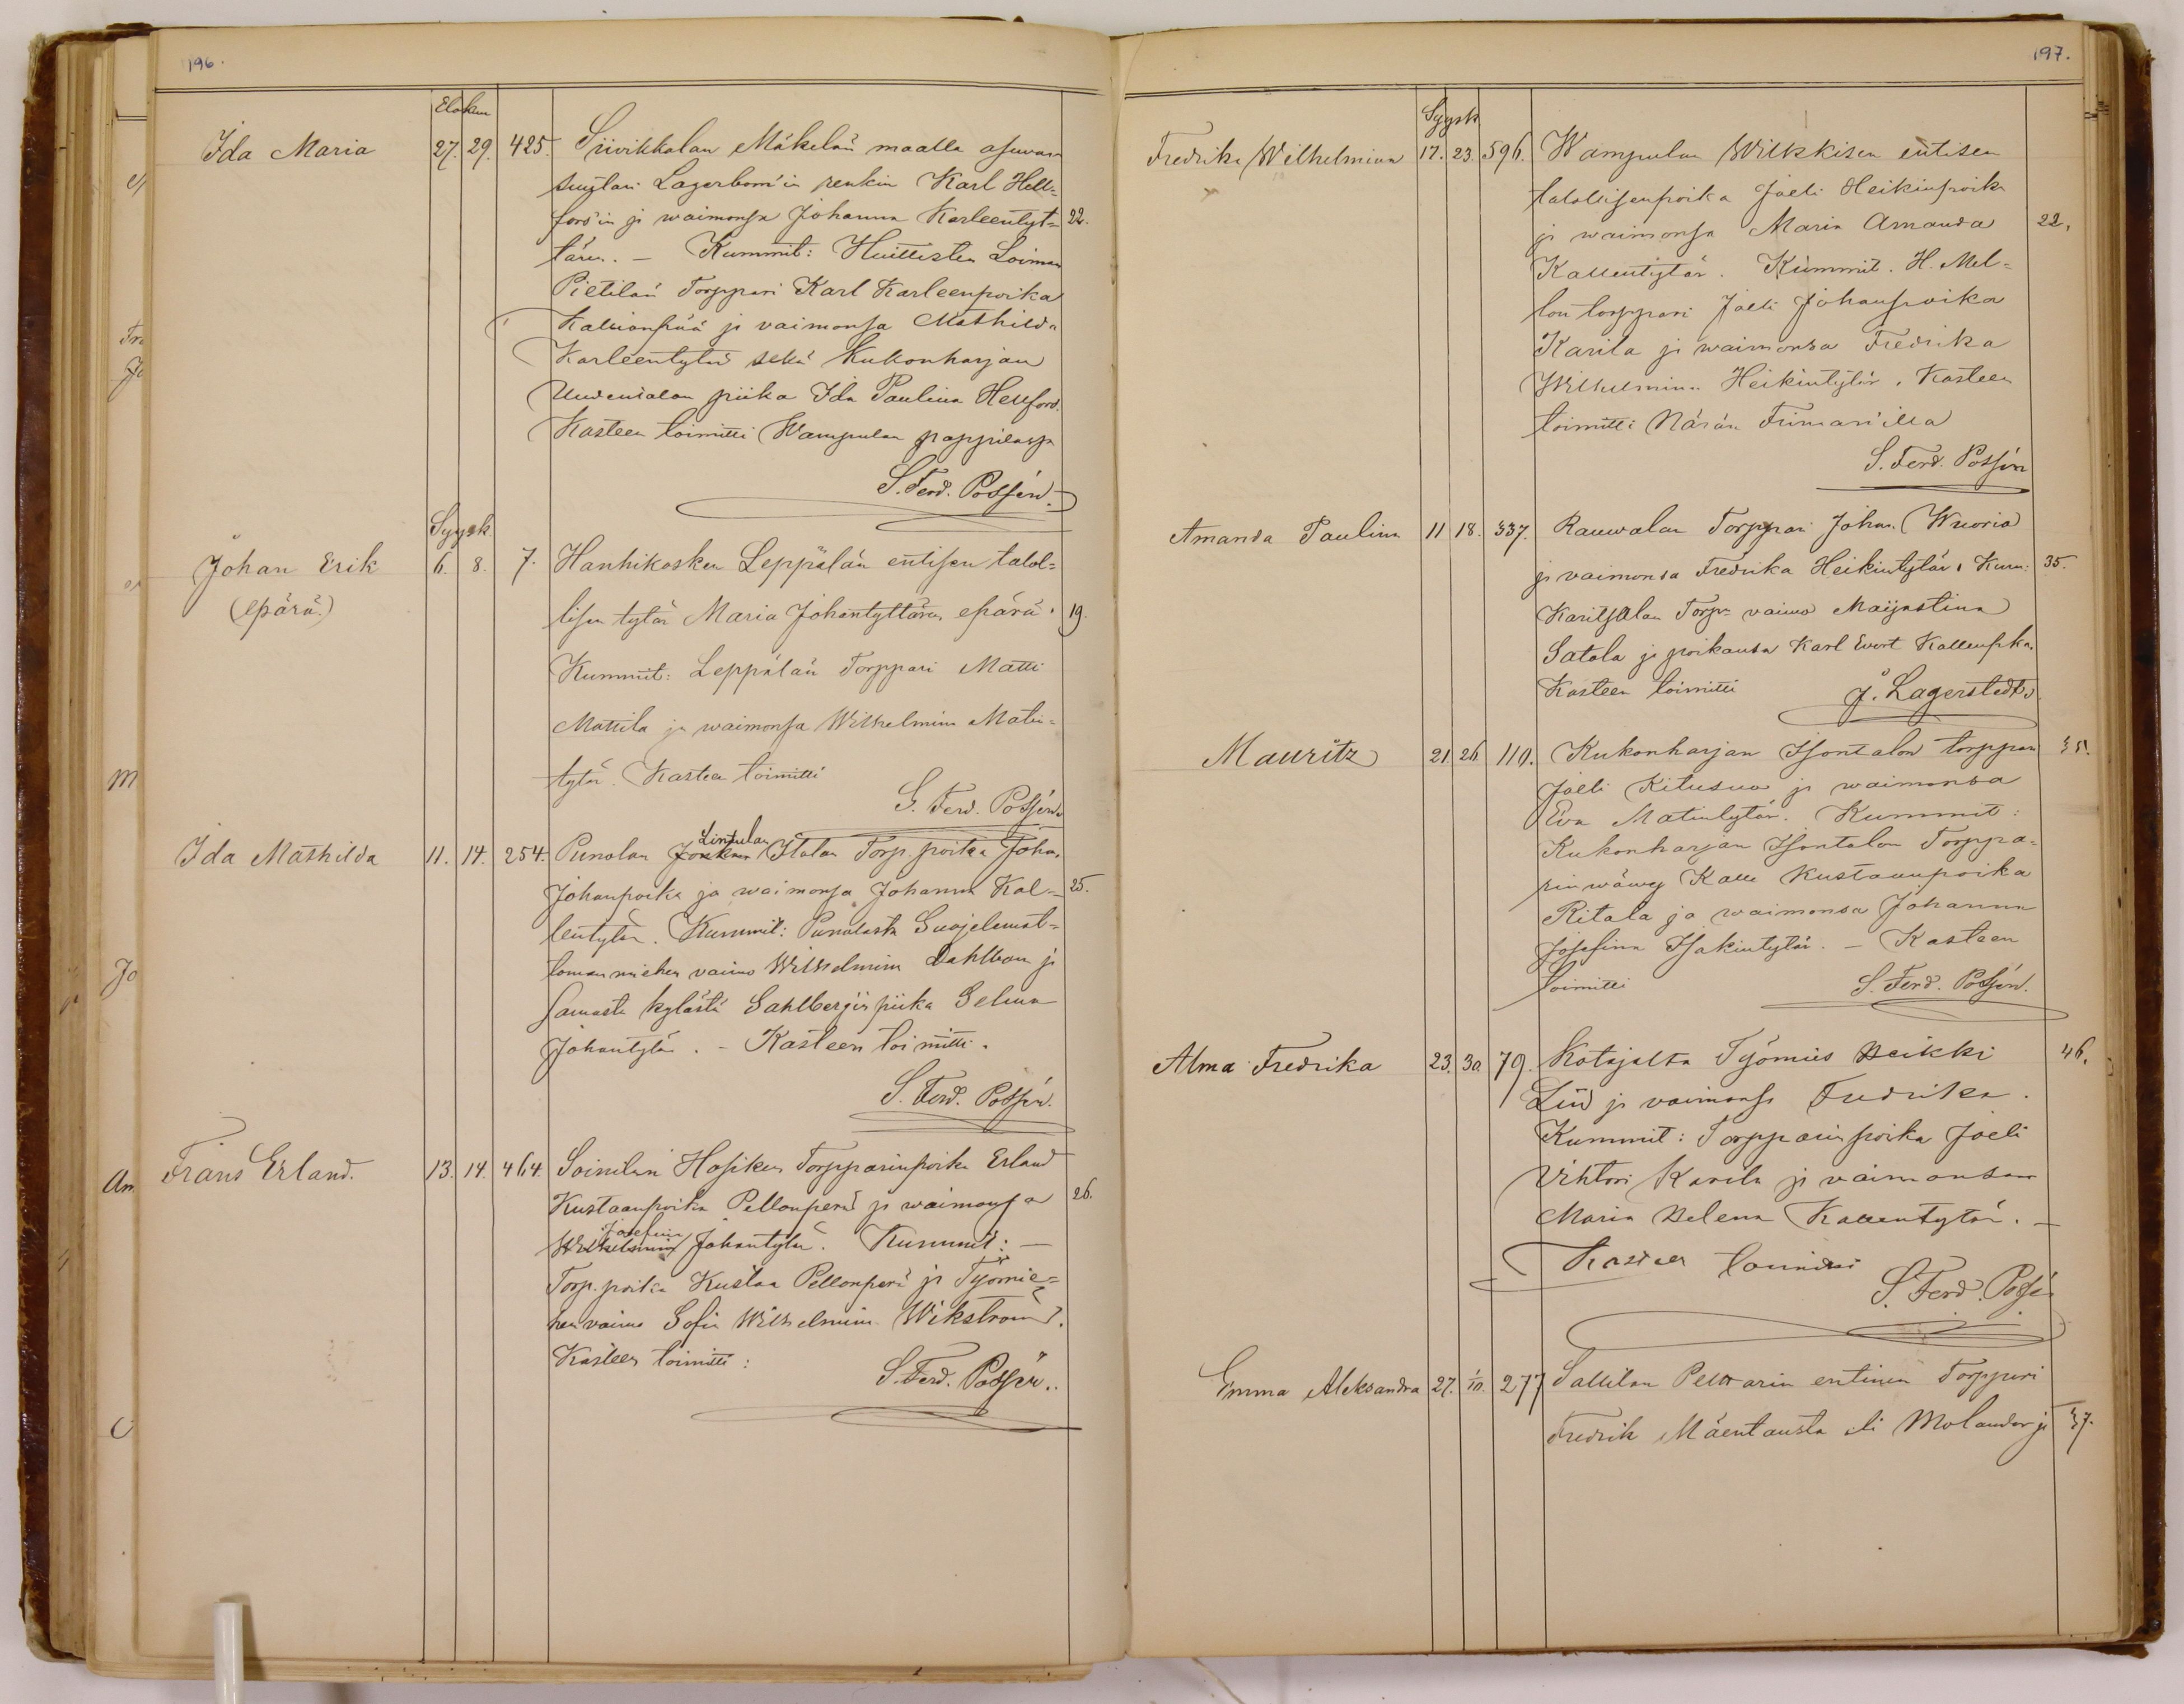 196.
Elokuu
Ida Maria 27. 29. 425. Siivikkalan Mäkelän maalla asuvan
suutari Lagerbom'in renkin Karl Hell-
fors'in ja waimonsa Johanna Karleentyt- 22.
tären. – Kummit: Huittisten Loiman
Pietilän Torppari Karl Karleenpoika
Kallionpää ja vaimonsa Mathilda
Karleentytär sekä Kukonharjan
Uudentalon piika Ida Paulina Hellfors.
Kasteen toimitti Wampulan pappilassa
S. Ferd. Possén.
Syysk.
Johan Erik 6. 8. 7. Hanhikosken Leppälän entisen talol-
(epärä.) lisen tytär Maria Johantyttären epärä. 19.
Kummit: Leppälän Torppari Matti
Mattila ja waimonsa Wilhelmina Matin-
tytär. Kasteen toimitti
S. Ferd. Possén.
Lintulan
Ida Mathilda 11. 14. 254. Punolan Jonkan Italan Torp. poika Joha.
Johanpoika ja waimonsa Johanna Kal- 25.
lentytär. Kummit: Punolasta Suojelemat-
toman miehen vaimo Wilhelmina Dahlbom ja
samasta kylästä Sahlbergin piika Selma
Johantytär. – Kasteen toimitti.
S. Ferd. Possén.
Frans Erland. 13. 14. 464. Soinilan Hosikan Torpparinpoika Erland
Kustaanpoika Pellonperä ja waimonsa 26.
Josefina
Wilhelmina Johantytär. Kummit: –
Torp. poika Kustaa Pellonperä ja Työmie-
hen vaimo Sofia Wilhelmina Wikström.
Kasteen toimitti:
S. Ferd. Possén.
197.
Syysk
Fredrika Wilhelmina 17. 23. 596. Wampulan Wilkkisen entisen
talollisenpoika Joeli Heikinpoika
ja waimonsa Maria Amanda 22.
Kallentytär. Kummit. H. Mel-
lon torppari Joeli Johanpoika
Karila ja waimonsa Fredrika
Wilhelmina Heikintytär. Kasteen
toimitti Närän Frimari'lla
S. Ferd. Possén
Amanda Paulina 11 18. 337. Rauwolan Torppari Johan Wuorio
ja vaimonsa Fredrika Heikintytär. Kum: 35.
Karitsalan Torp: vaimo Maijastina
Satola ja poikansa Karl Evert Kallenpka.
Kasteen toimitti J. Lagerstedt.
Mauritz 21 26. 110. Kukonharjan Isontalon torppari 35.
Joeli Kitusuo ja waimonsa
Eva Matintytär. Kummit:
Kukonharjan Isontalon Torppa-
rin wäwy Kalle Kustaanpoika
Ritala ja waimonsa Johanna
Josefina Isakintytär. – Kasteen
toimitti S. Ferd. Possén.
Alma Fredrika 23. 30. 79. Kotajalta Työmies Heikki 46.
Lind ja vaimonsa Fredrika.
Kummit: Torpparin poika Joeli
Vihtori Karila ja vaimonsa
Maria Helena Kallentytär. –
Kasteen toimitti
S. Ferd. Possén
Emma Aleksandra 27. 1/10. 277 Sallilan Pelttarin entinen Torppari
Fredrik Mäentausta eli Molander ja 37.